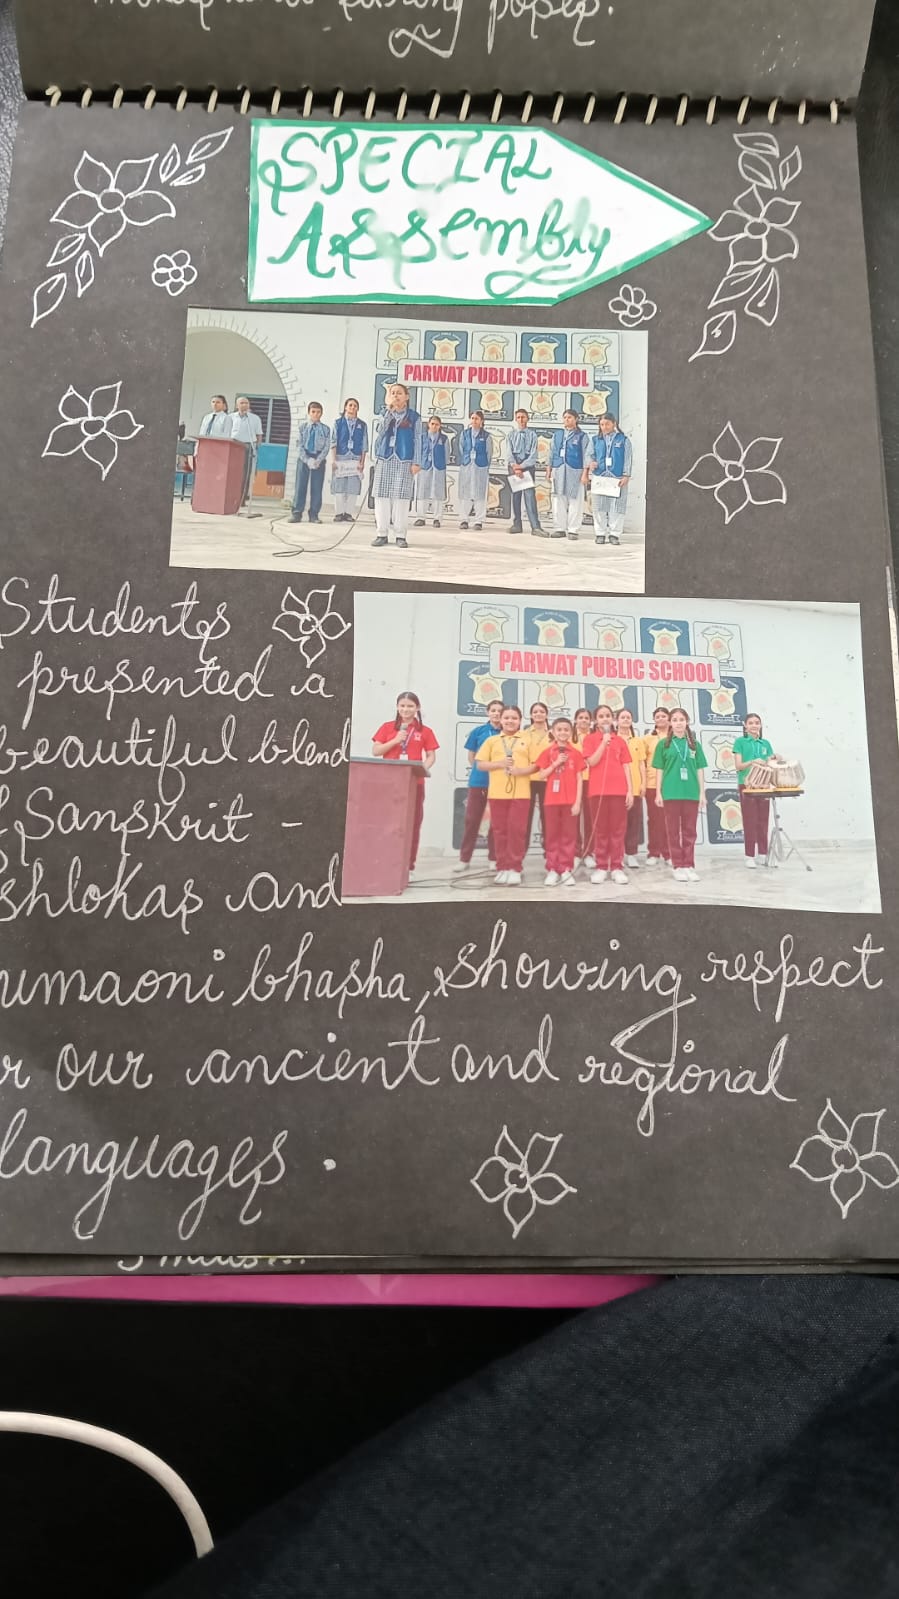 posing poses.
SPECIAL
Assembly
PARWAT PUBLIC SCHOOL
PARWAT PUBLIC SCHOOL
Students
presented a
beautiful blend
Sanskrit -
shlokas and
umaoni bhasha, showing respect
r our ancient and regional
languages.